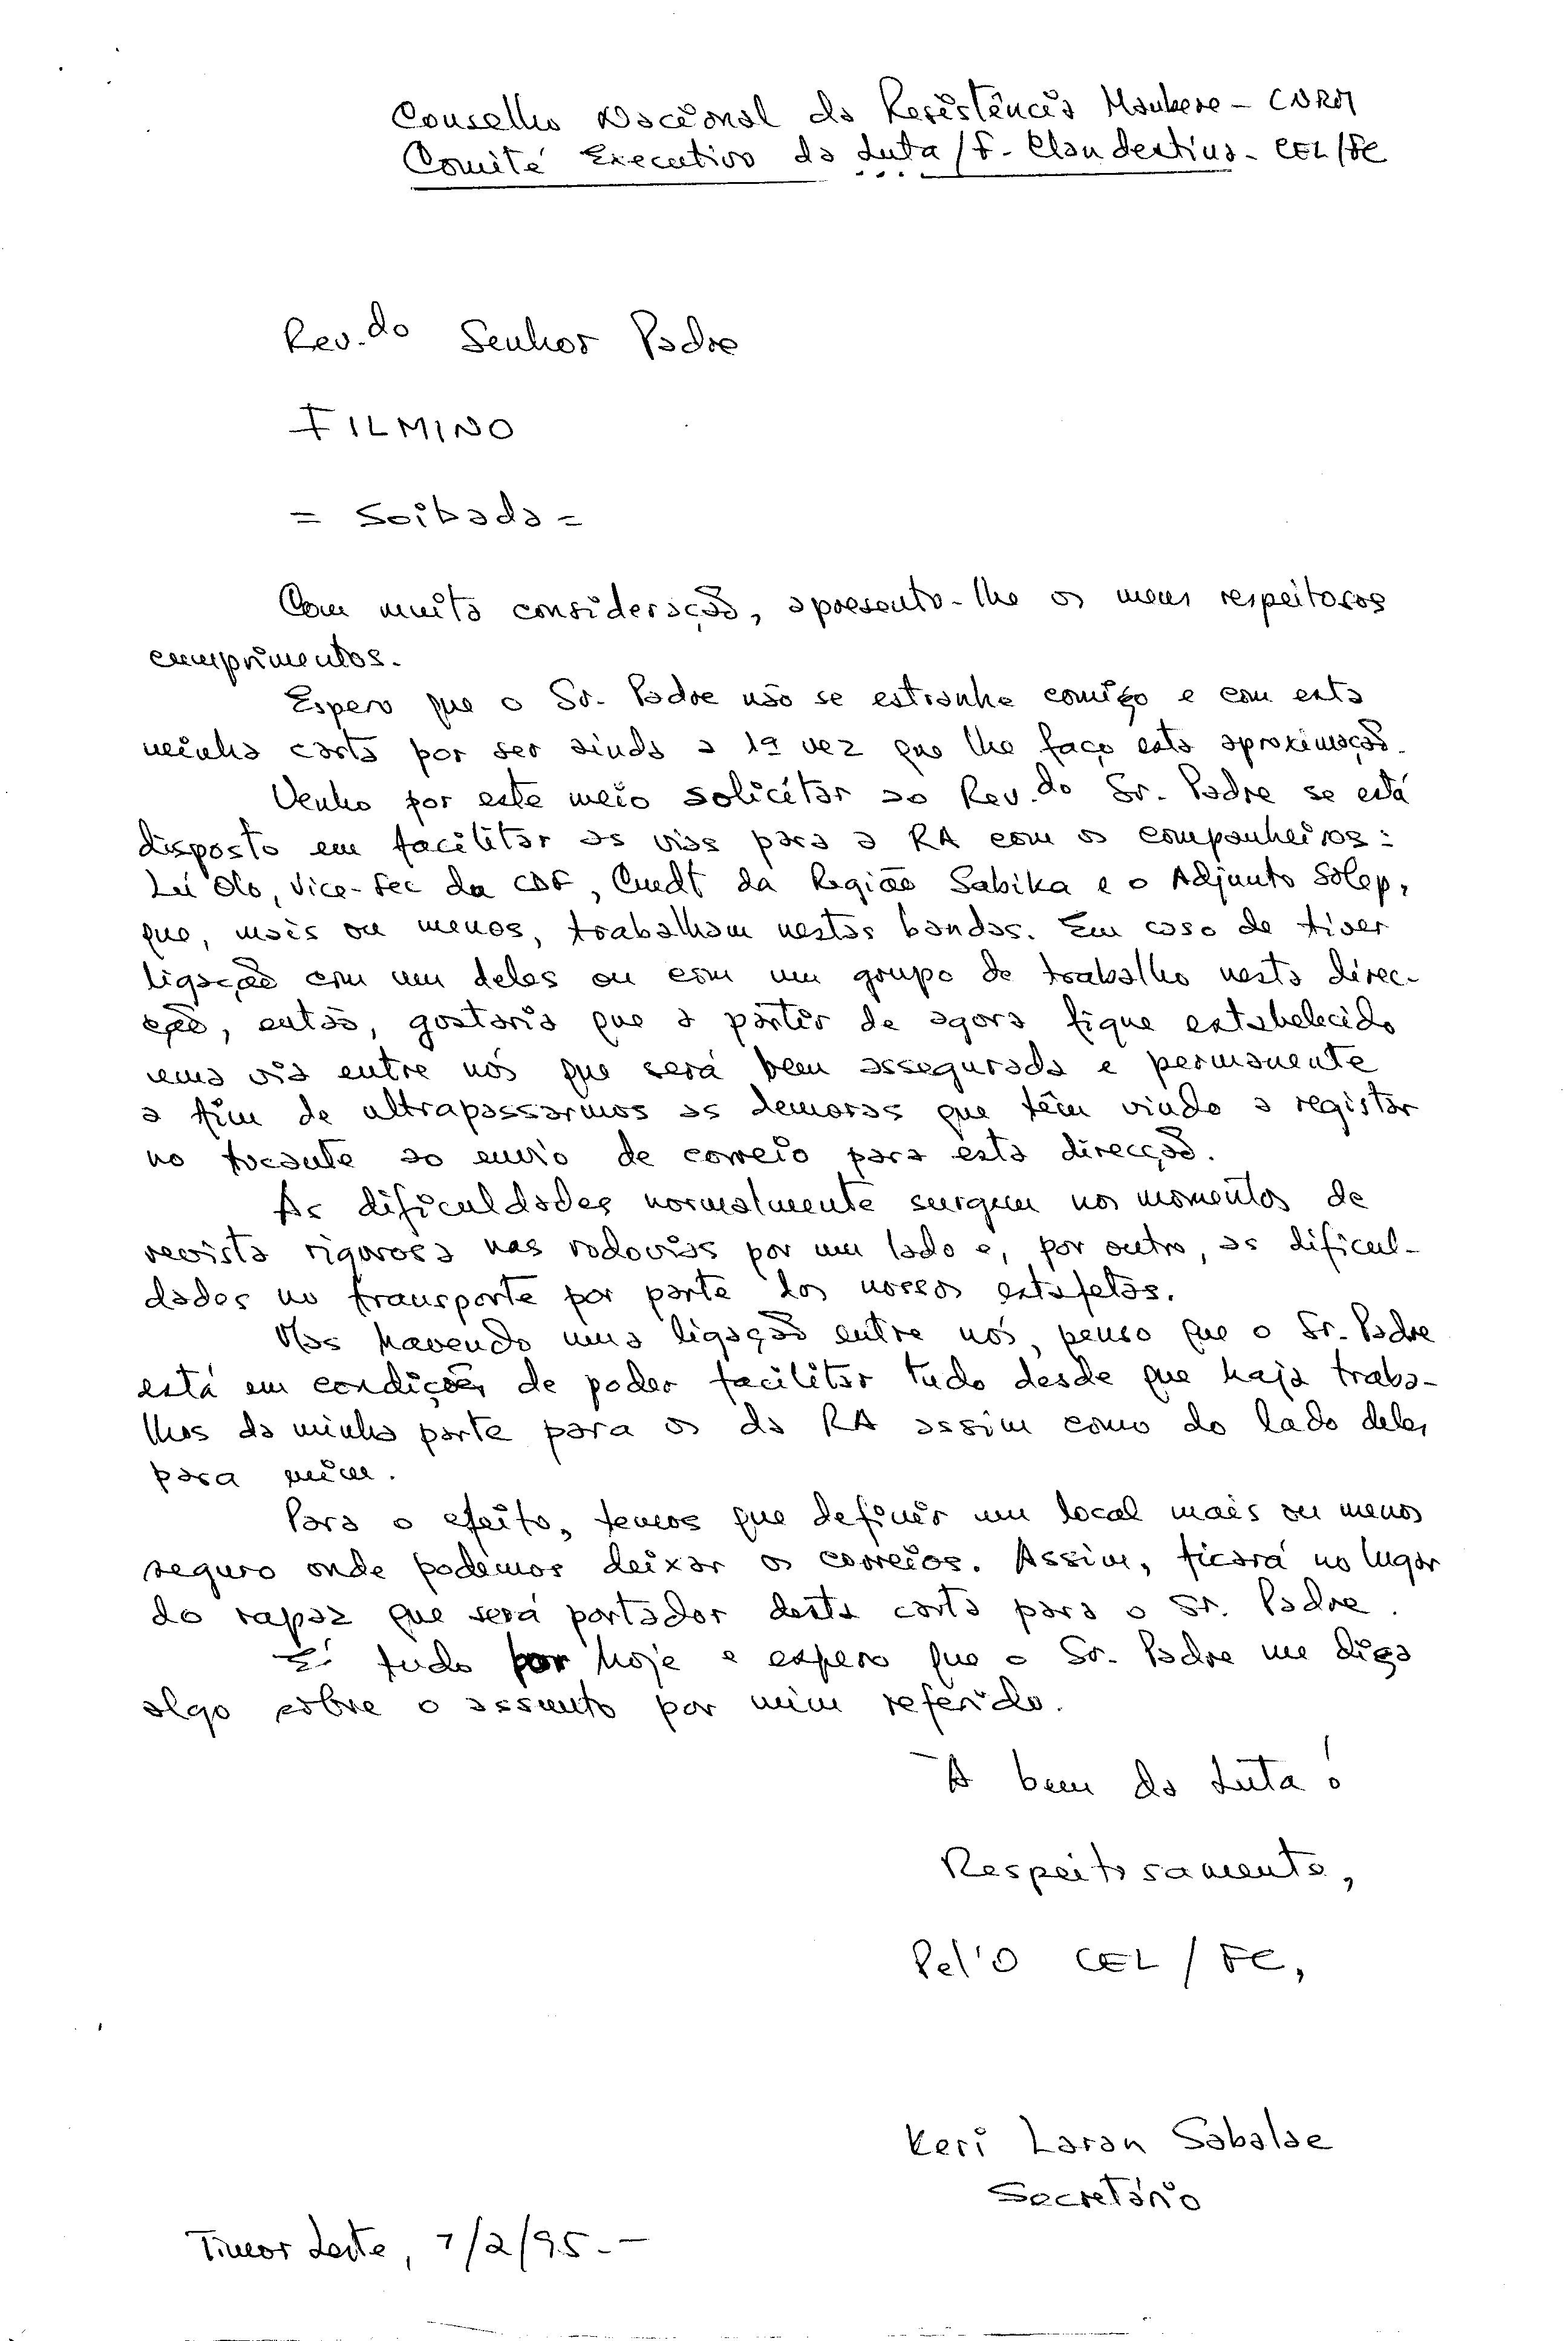 Conselho Nacional da Resistência Maubere - CNRM
Comité Executivo da Luta / F. Clandestina - CEL/FC
Rev.do Senhor Padre
FILMINO
= Soibada =
Com muita consideração, apresento-lhe os meus respeitosos
cumprimentos.
Espero que o Sr. Padre não se estranhe comigo e com esta
minha carta por ser ainda a 1ª vez que lhe faço esta aproximação.
Venho por este meio solicitar ao Rev.do Sr. Padre se está
disposto em facilitar as vias para a RA com os companheiros:
Lu Olo, Vice-Sec da CDF, Cmdt da Região Sabika e o Adjunto Solep,
que, mais ou menos, trabalham nestas bandas. Em caso de tiver
ligação com um deles ou com um grupo de trabalho nesta direc-
ção, então, gostaria que a partir de agora fique estabelecido
uma via entre nós que será bem assegurada e permanente
a fim de ultrapassarmos as demoras que têm vindo a registar
no tocante ao envio de correio para esta direcção.
As dificuldades normalmente surgem nos momentos de
revista rigorosa nas rodovias por um lado e, por outro, as dificul-
dades no transporte por parte dos nossos estafetas.
Mas havendo uma ligação entre nós, penso que o Sr. Padre
está em condições de poder facilitar tudo desde que haja traba-
lhos da minha parte para os da RA assim como do lado deles
para mim.
Para o efeito, temos que definir um local mais ou menos
seguro onde podemos deixar os correios. Assim, ficará no lugar
do rapaz que será portador desta carta para o Sr. Padre.
É tudo por hoje e espero que o Sr. Padre me diga
algo sobre o assunto por mim referido.
A bem da Luta!
Respeitosamente,
Pel'O CEL / FC,
Keri Laran Sabalae
Secretário
Timor Leste, 7/2/95.-